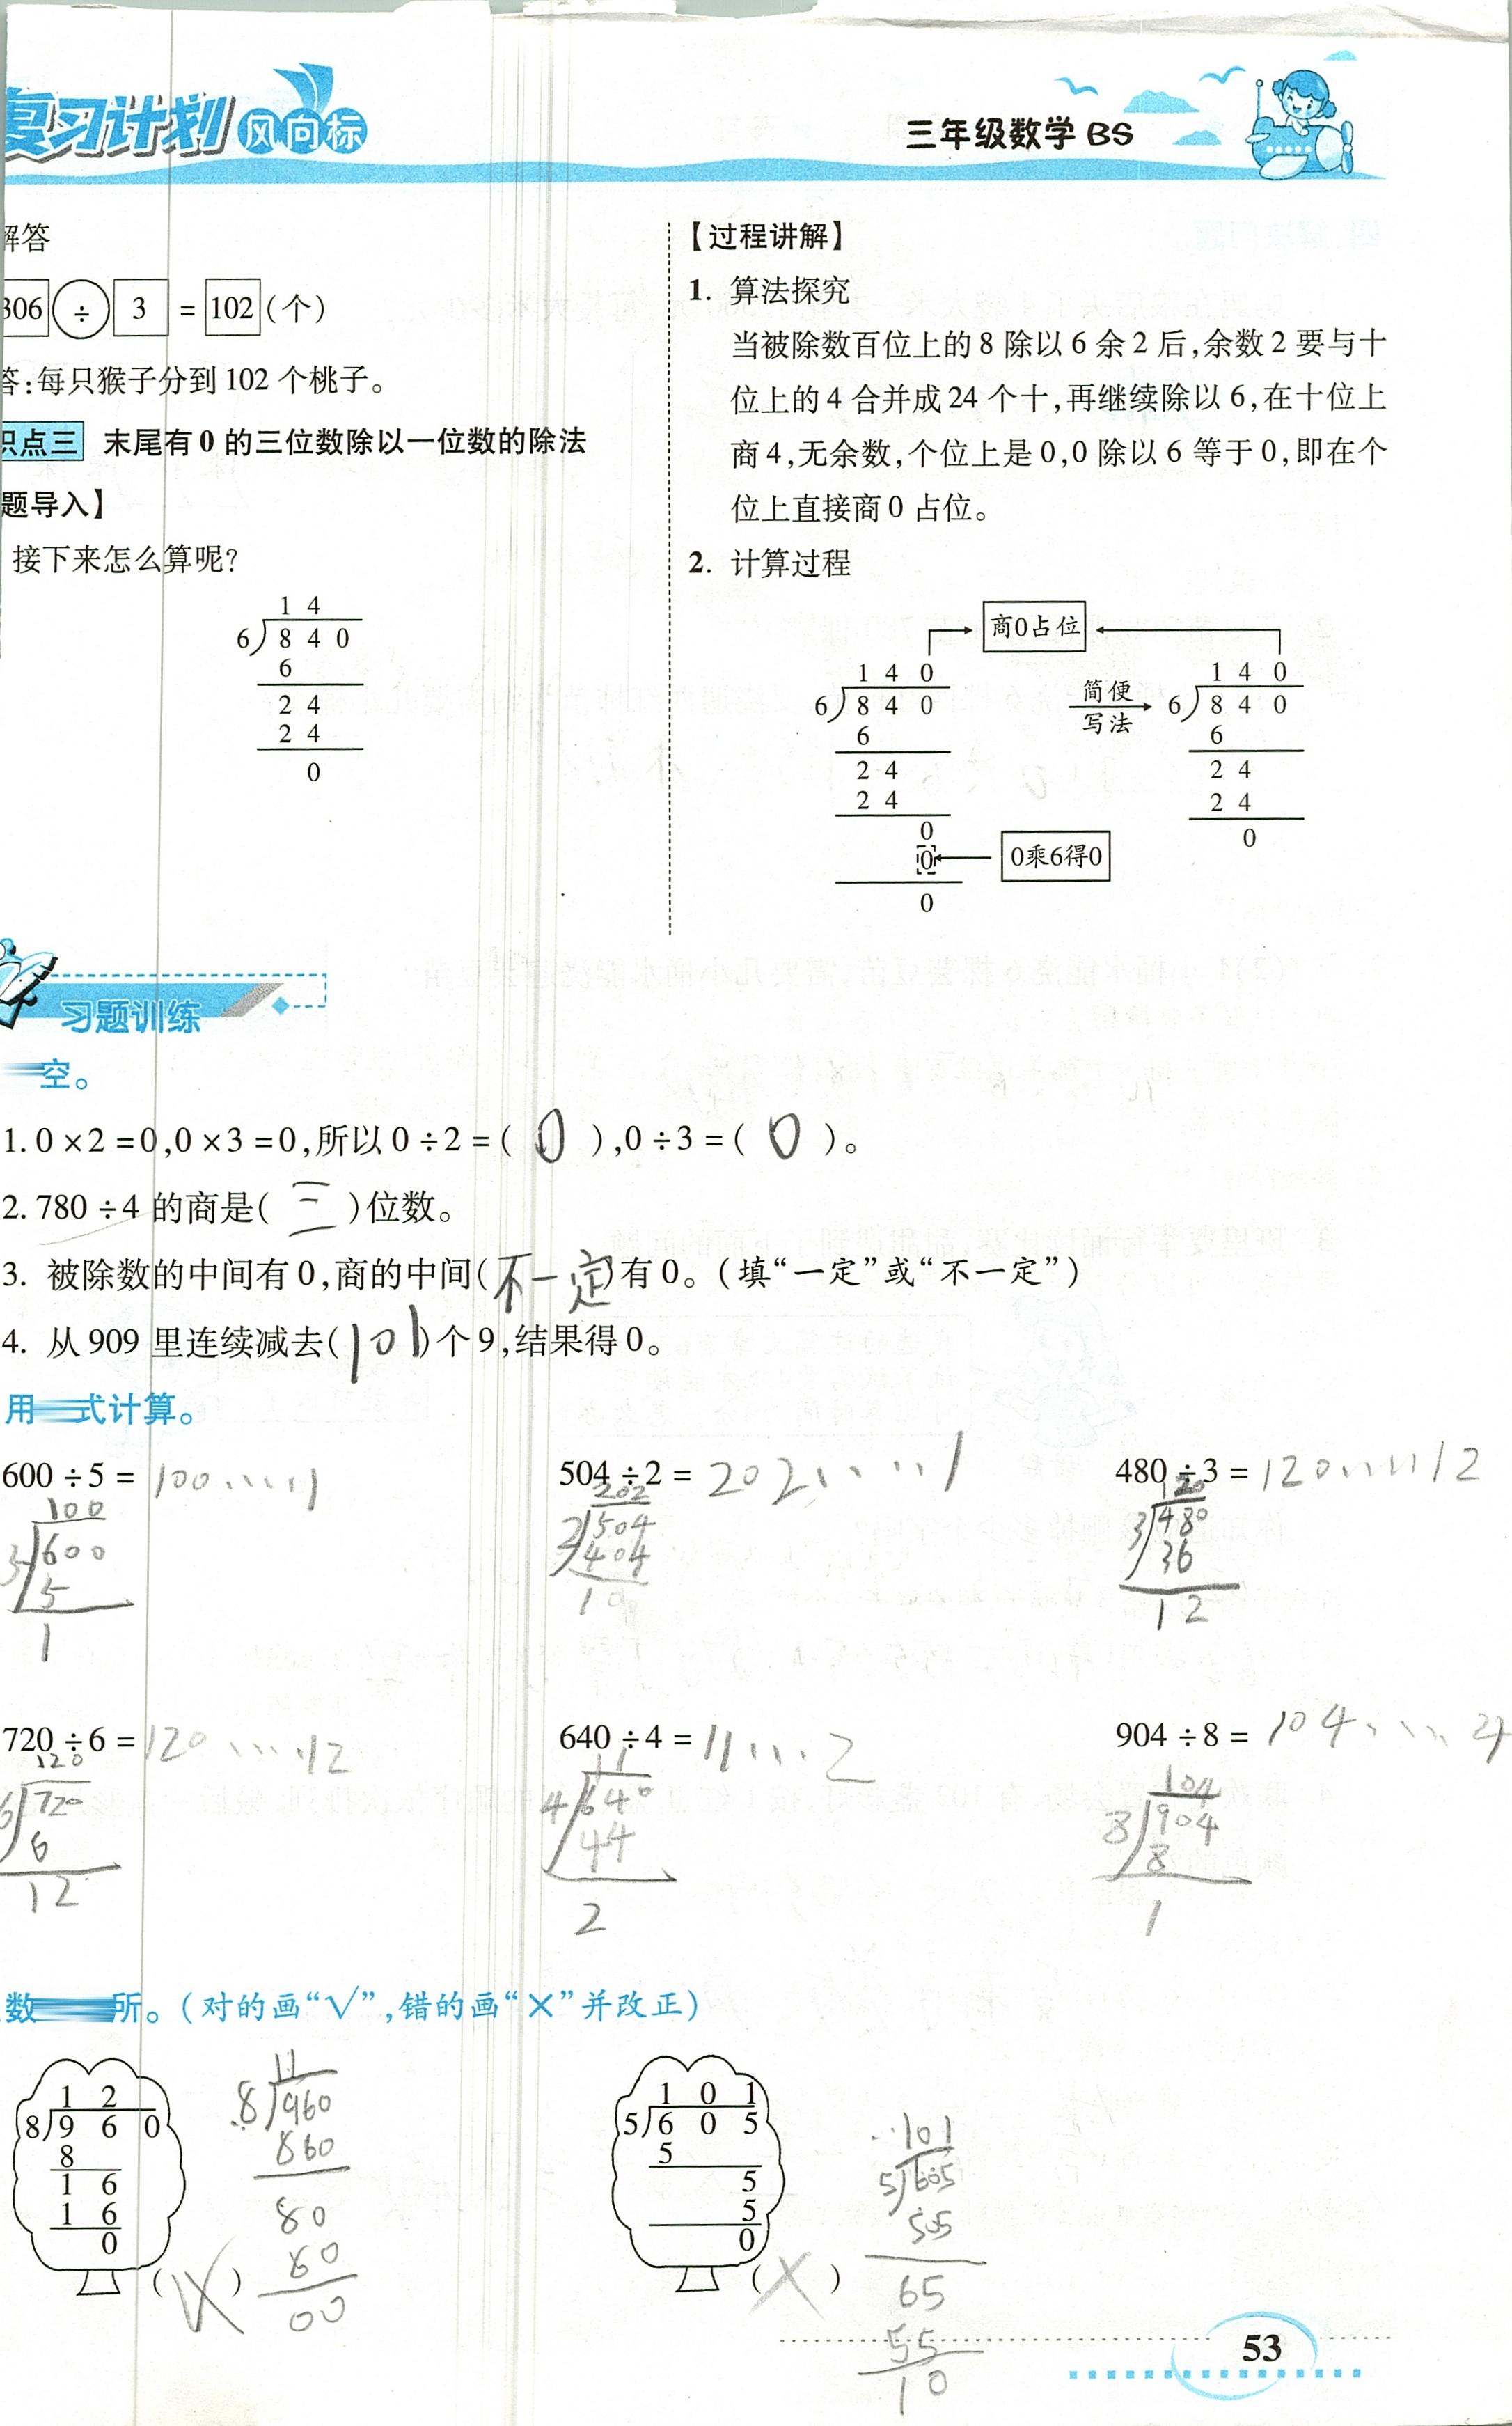 复习计划 风向标
三年级数学 BS
解答
306 ÷ 3 = 102 (个)
答:每只猴子分到 102 个桃子。
识点三 末尾有 0 的三位数除以一位数的除法
题导入】
接下来怎么算呢?
1 4
6 ) 8 4 0
6
2 4
2 4
0
【过程讲解】
1. 算法探究
当被除数百位上的 8 除以 6 余 2 后,余数 2 要与十
位上的 4 合并成 24 个十,再继续除以 6,在十位上
商 4,无余数,个位上是 0,0 除以 6 等于 0,即在个
位上直接商 0 占位。
2. 计算过程
商0占位
1 4 0
6 ) 8 4 0
6
2 4
2 4
0
0 0乘6得0
0
简便
写法
1 4 0
6 ) 8 4 0
6
2 4
2 4
0
习题训练
空。
1. 0 × 2 = 0,0 × 3 = 0,所以 0 ÷ 2 = ( 0 ),0 ÷ 3 = ( 0 )。
2. 780 ÷ 4 的商是( 三 )位数。
3. 被除数的中间有 0,商的中间(不一定)有 0。(填“一定”或“不一定”)
4. 从 909 里连续减去(101)个 9,结果得 0。
用 式计算。
600 ÷ 5 = 100……1
504 ÷ 2 = 202……1
480 ÷ 3 = 120……12
100
5 ) 600
5
1
202
2 ) 504
404
10
120
3 ) 480
36
12
720 ÷ 6 = 120……12
640 ÷ 4 = 11……2
904 ÷ 8 = 104……4
120
6 ) 720
6
12
11
4 ) 640
44
2
104
8 ) 904
8
1
数 所。(对的画“√”,错的画“×”并改正)
1 2
8 ) 9 6 0
8
1 6
1 6
0
( × )
11
8 ) 960
860
80
80
00
1 0 1
5 ) 6 0 5
5
5
5
0
( × )
101
5 ) 605
505
65
55
10
53